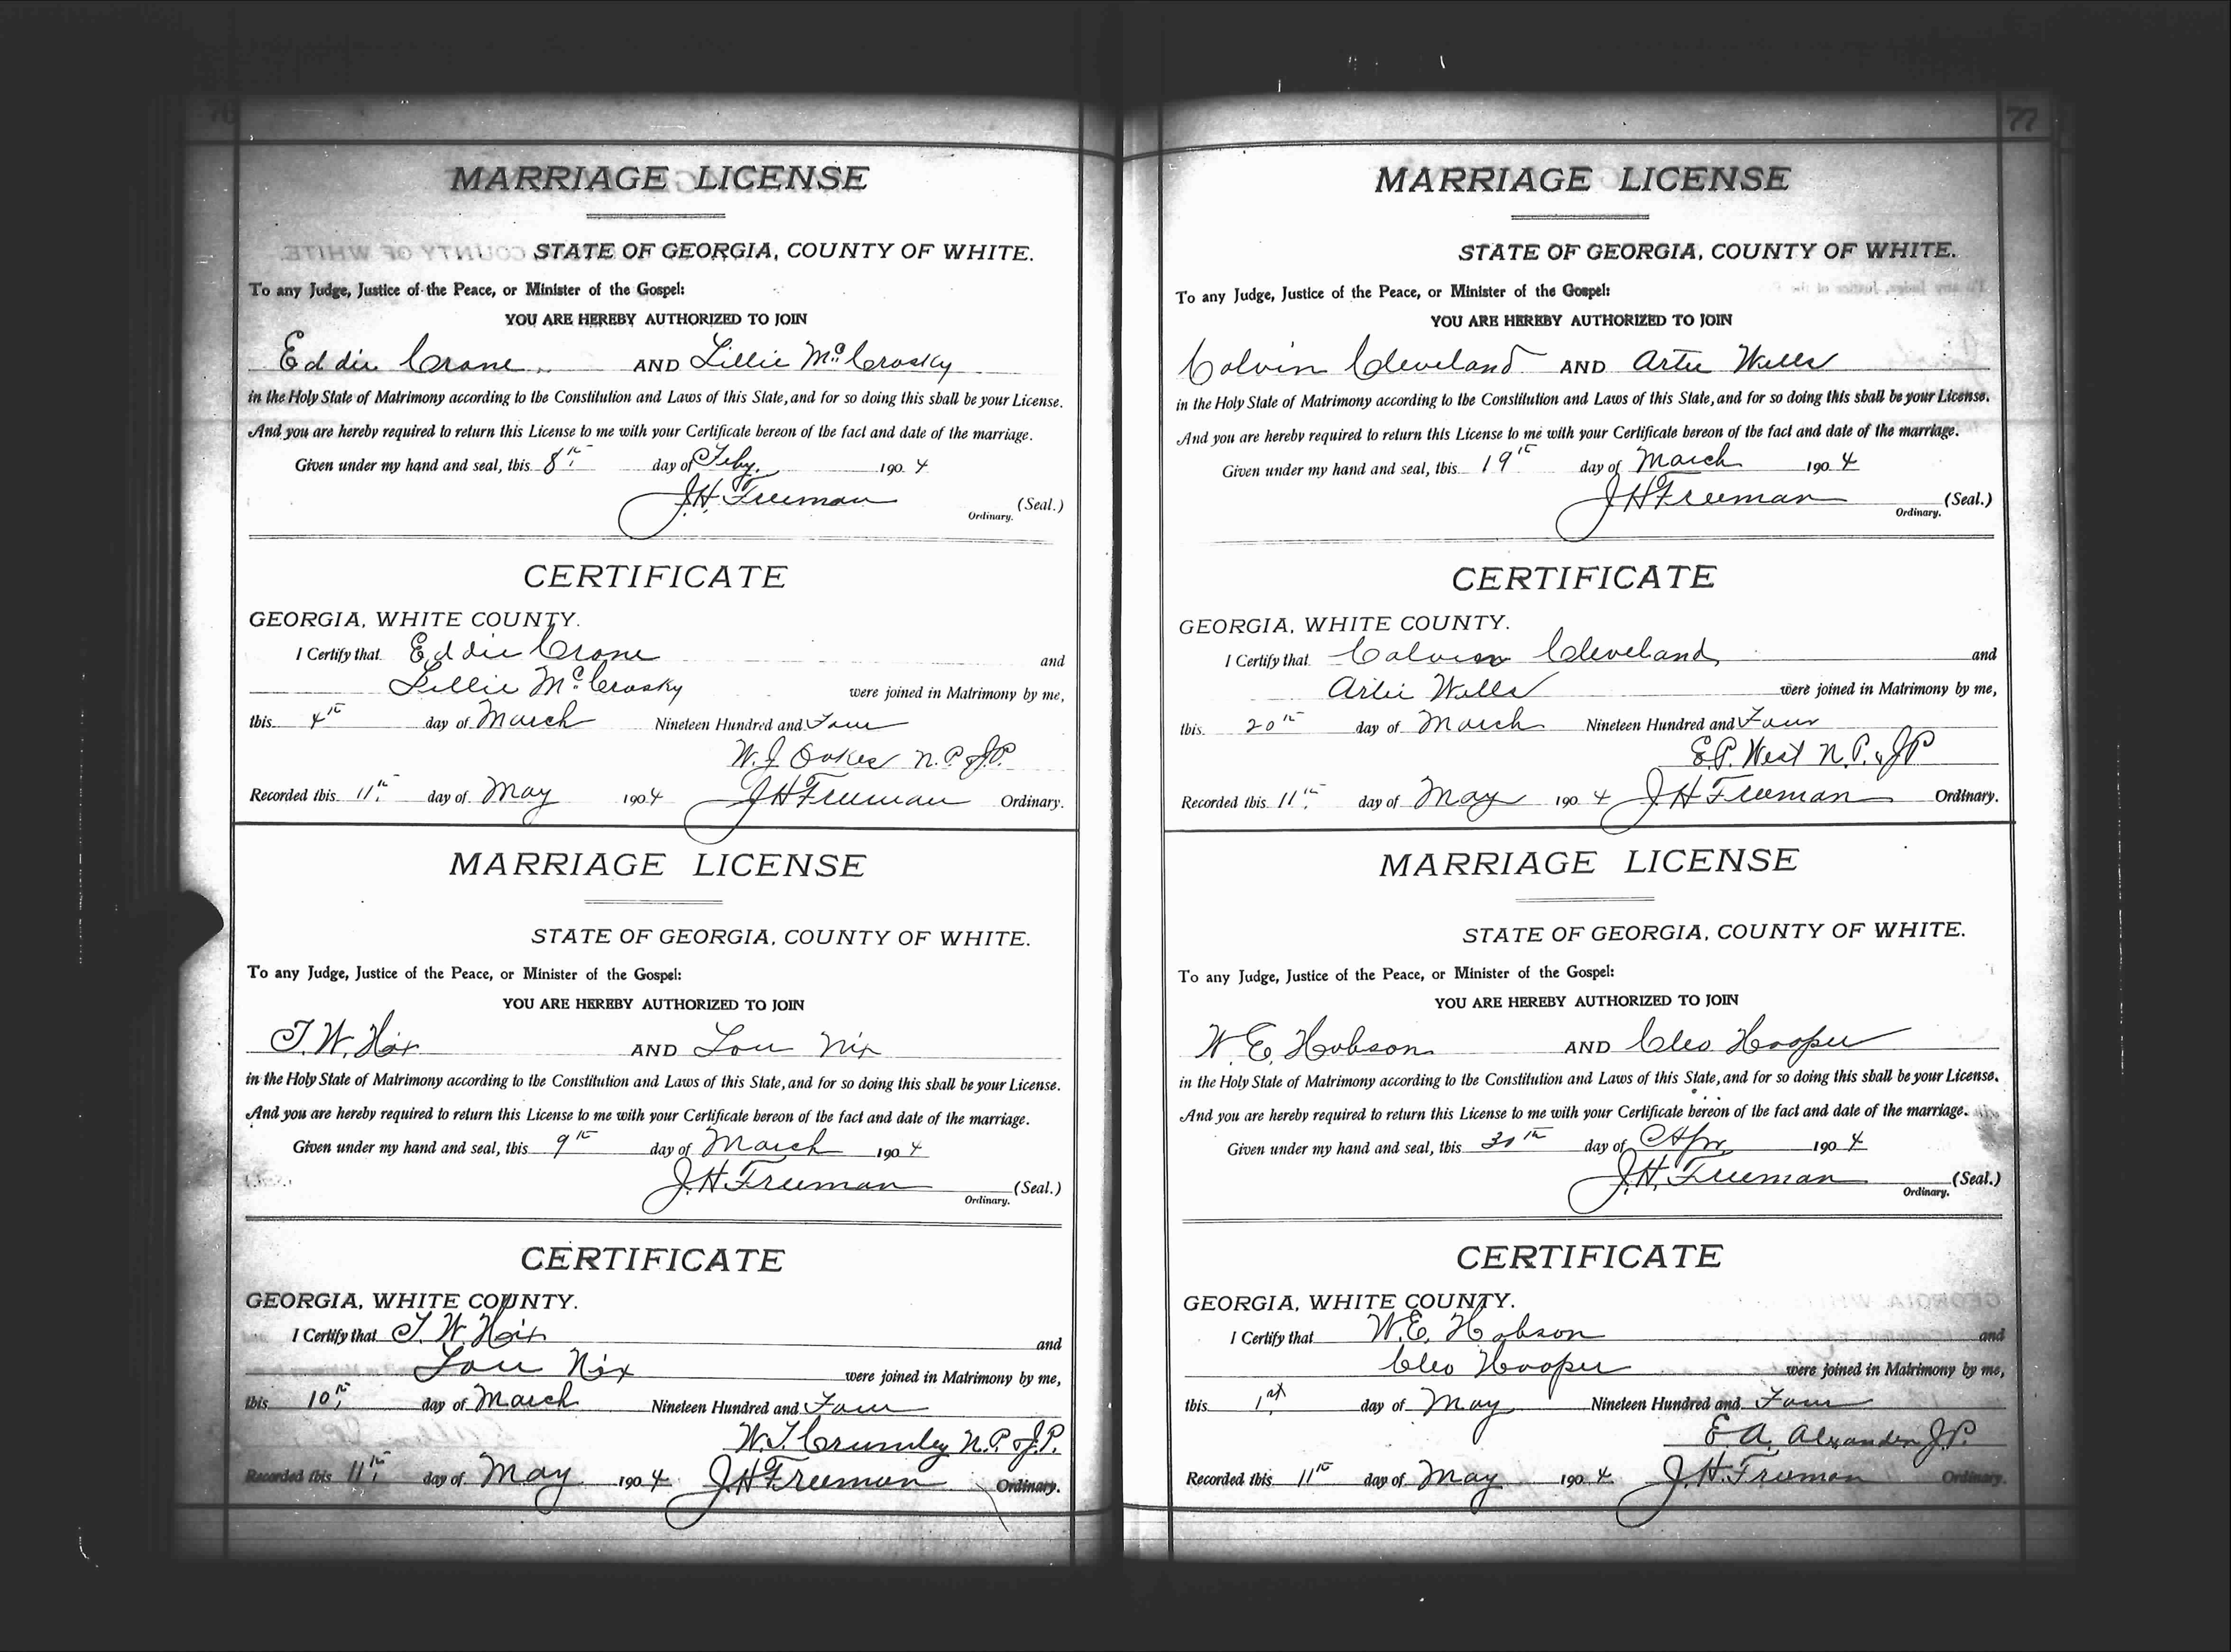 76
MARRIAGE LICENSE
STATE OF GEORGIA, COUNTY OF WHITE.
To any Judge, Justice of the Peace, or Minister of the Gospel:
YOU ARE HEREBY AUTHORIZED TO JOIN
Eddie Crane AND Lillie McCrosky
in the Holy State of Matrimony according to the Constitution and Laws of this State, and for so doing this shall be your License.
And you are hereby required to return this License to me with your Certificate hereon of the fact and date of the marriage.
Given under my hand and seal, this 8th day of Feby. 1904
J.H. Freeman (Seal.)
Ordinary.
CERTIFICATE
GEORGIA, WHITE COUNTY.
I Certify that Eddie Crane and
Lillie McCrosky were joined in Matrimony by me,
this 4th day of March Nineteen Hundred and Four
W.J. Oakes N.P. & J.P.
Recorded this 11th day of May 1904 J H Freeman Ordinary.
MARRIAGE LICENSE
STATE OF GEORGIA, COUNTY OF WHITE.
To any Judge, Justice of the Peace, or Minister of the Gospel:
YOU ARE HEREBY AUTHORIZED TO JOIN
T. W. Hix AND Lou Nix
in the Holy State of Matrimony according to the Constitution and Laws of this State, and for so doing this shall be your License.
And you are hereby required to return this License to me with your Certificate hereon of the fact and date of the marriage.
Given under my hand and seal, this 9th day of March 1904
J.H. Freeman (Seal.)
Ordinary.
CERTIFICATE
GEORGIA, WHITE COUNTY.
I Certify that T. W. Hix and
Lou Nix were joined in Matrimony by me,
this 10th day of March Nineteen Hundred and Four
W.T. Crumley N.P. & J.P.
Recorded this 11th day of May 1904 J.H. Freeman Ordinary.
77
MARRIAGE LICENSE
STATE OF GEORGIA, COUNTY OF WHITE.
To any Judge, Justice of the Peace, or Minister of the Gospel:
YOU ARE HEREBY AUTHORIZED TO JOIN
Calvin Cleveland AND Artie Wells
in the Holy State of Matrimony according to the Constitution and Laws of this State, and for so doing this shall be your License.
And you are hereby required to return this License to me with your Certificate hereon of the fact and date of the marriage.
Given under my hand and seal, this 19th day of March 1904
J H Freeman (Seal.)
Ordinary.
CERTIFICATE
GEORGIA, WHITE COUNTY.
I Certify that Calvin Cleveland and
Artie Wells were joined in Matrimony by me,
this 20th day of March Nineteen Hundred and Four
E.P. West N.P. & J P
Recorded this 11th day of May 1904 J H Freeman Ordinary.
MARRIAGE LICENSE
STATE OF GEORGIA, COUNTY OF WHITE.
To any Judge, Justice of the Peace, or Minister of the Gospel:
YOU ARE HEREBY AUTHORIZED TO JOIN
W. E. Hobson AND Cleo Hooper
in the Holy State of Matrimony according to the Constitution and Laws of this State, and for so doing this shall be your License.
And you are hereby required to return this License to me with your Certificate hereon of the fact and date of the marriage.
Given under my hand and seal, this 30th day of Apr. 1904
J.H. Freeman (Seal.)
Ordinary.
CERTIFICATE
GEORGIA, WHITE COUNTY.
I Certify that W.E. Hobson and
Cleo Hooper were joined in Matrimony by me,
this 1st day of May Nineteen Hundred and Four
E. A. Alexander J.P.
Recorded this 11th day of May 1904 J.H. Freeman Ordinary.